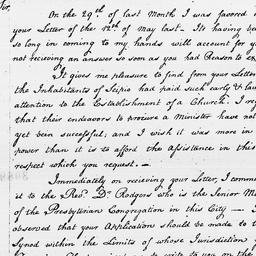 Sir,
On the 29th of last Month I was favored
your Letter of the 12th of May last. Its having be
so long in coming to my hands will account for y
not receiving an answer so soon as you had Reason to ex
It gives me pleasure to find from your Letter
the Inhabitants of Scipio had paid such early & lau
attention to the Establishment of a Church. I re
that their endeavors to procure a Minister have not
yet been sucessful; and I wish it was more in
power than it is to afford the Assistance in this
respect which you request. —
Immediately on recieving your Letter, I comm
it to the Revd. Dr. Rodgers who is the Senior M
of the Presbyterian Congregation in this City —
observed that your Application should be made to t
Synod within the Limits of whose Jurisdiction
to write to you on the